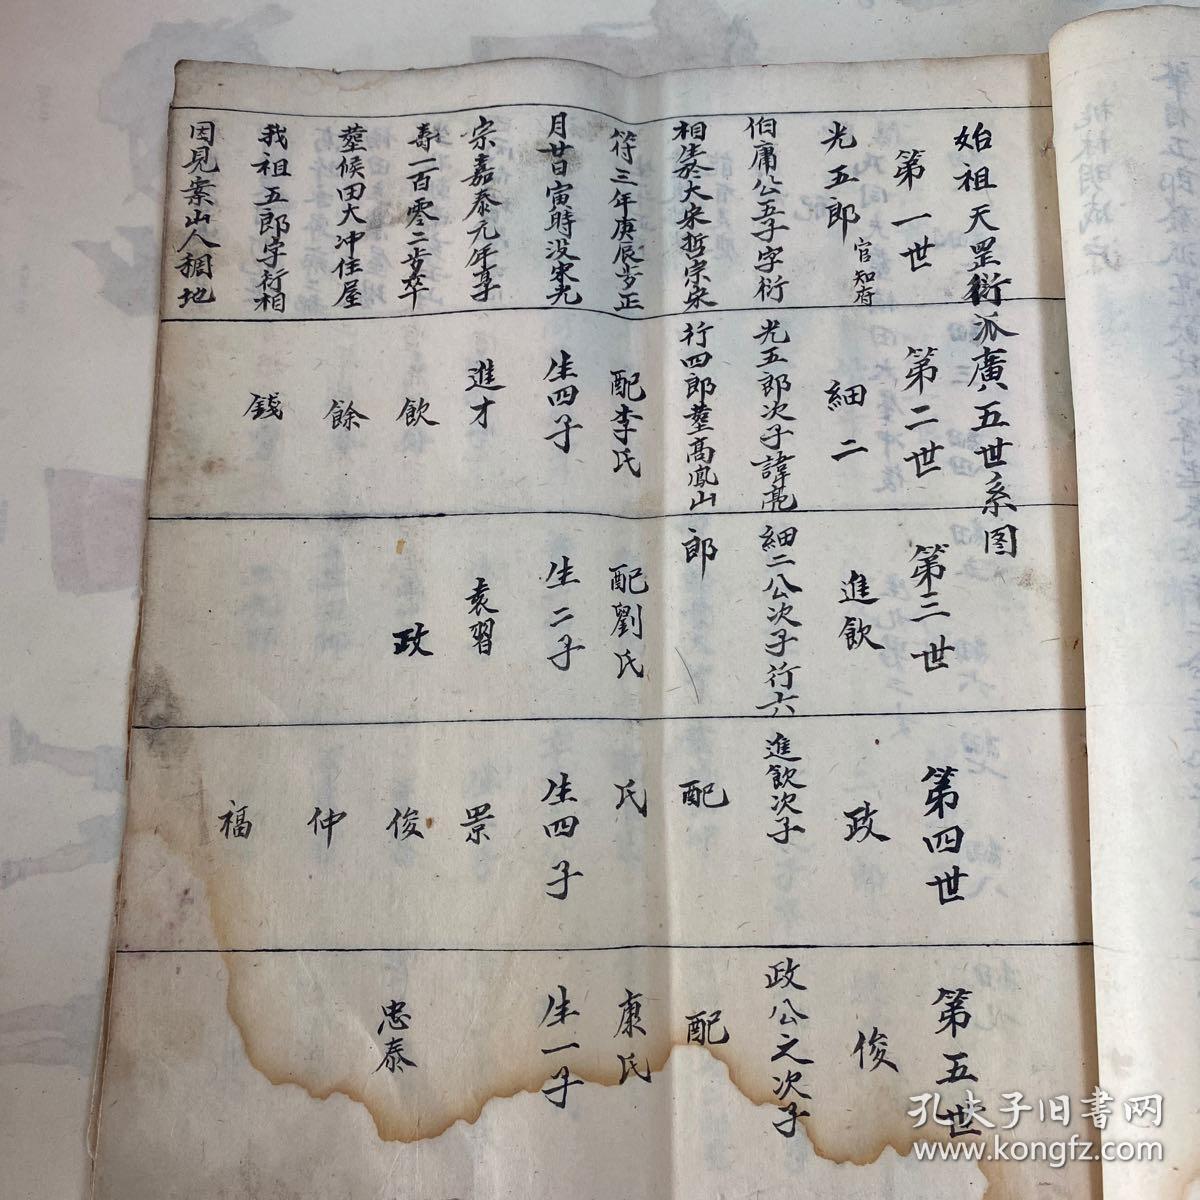 始祖天罡衍派廣五世系图
第一世
光五郎 官知府
伯庸公五子字衍
相生於大宋哲宗宋
符三年庚辰岁正
月廿日寅時没宋光
宗嘉泰元年享
寿一百零二岁卒
塟候田大冲住屋
我祖五郎字行相
因見案山人稠地
第二世
細二
光五郎次子諱亮
行四郎塟高鳳山
配李氏
生四子
進才
飲
餘
錢
第三世
進飲
細二公次子行六
郎
配劉氏
生二子
袁習
政
第四世
政
進飲次子
配
氏
生四子
景
俊
仲
福
第五世
俊
政公之次子
配
康氏
生一子
忠泰
孔夫子旧書网
www.kongfz.com